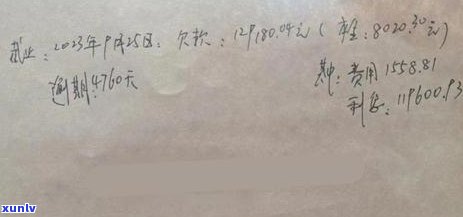 截止:2023年9月25日,欠款:129180.04元(本金:8020.30元)
逾期:4760天
其中:费用1558.81
利息:119600.93
xunlv